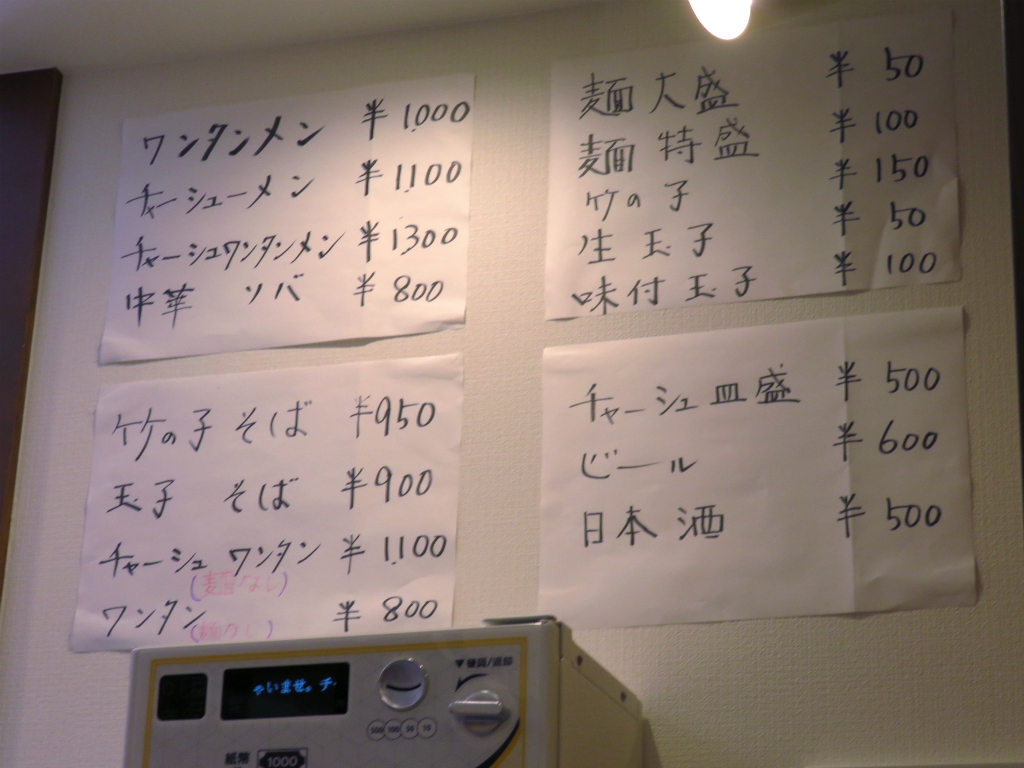 ワンタンメン ¥1.000
チャーシューメン ¥1.100
チャーシュワンタンメン ¥1300
中華 ソバ ¥800
麺 大盛 ¥50
麺 特盛 ¥100
竹の子 ¥150
生玉子 ¥50
味付玉子 ¥100
竹の子 そば ¥950
玉子 そば ¥900
チャーシュ ワンタン ¥1.100
(麺なし)
ワンタン ¥800
(麺なし)
チャーシュ皿盛 ¥500
ビール ¥600
日本酒 ¥500
ゃいませ。チ
▼硬貨/返却
500 100 50 10
紙幣 1000